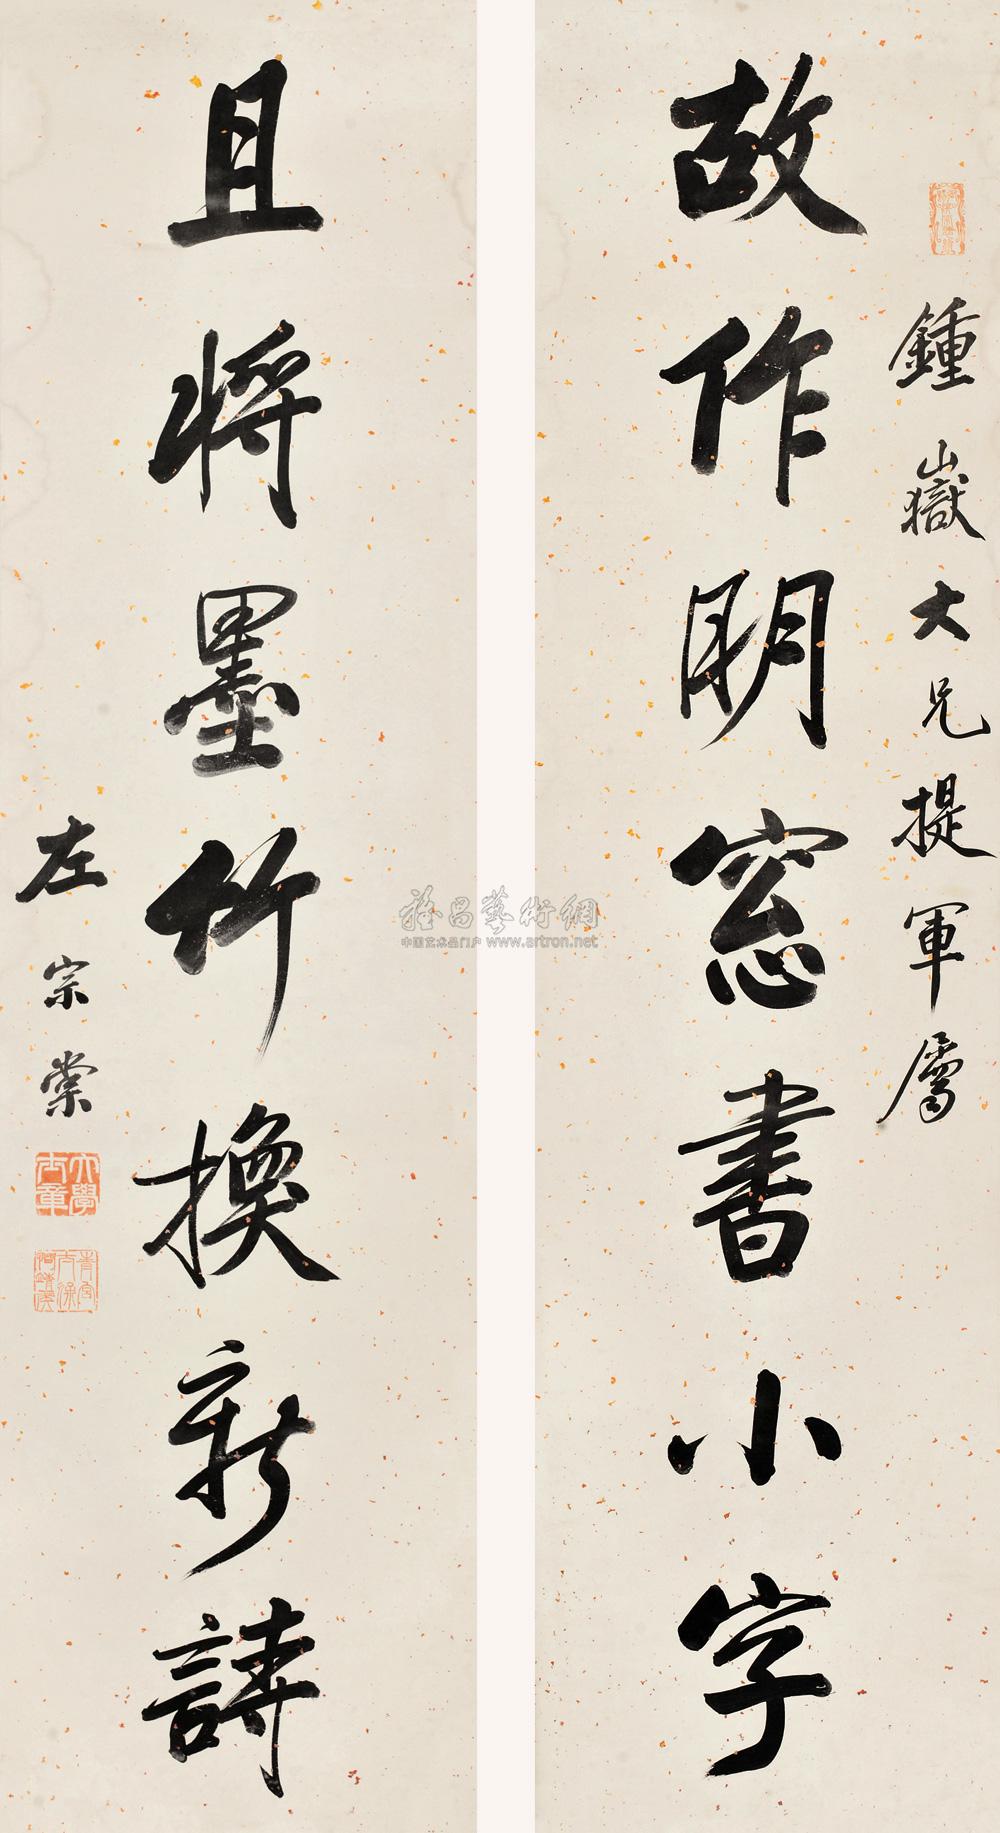 鍾嶽大兄提軍屬
故作明窓書小字
且將墨竹換新詩
左宗棠
大學士章
雅昌藝術網
中国艺术品门户 www.artron.net